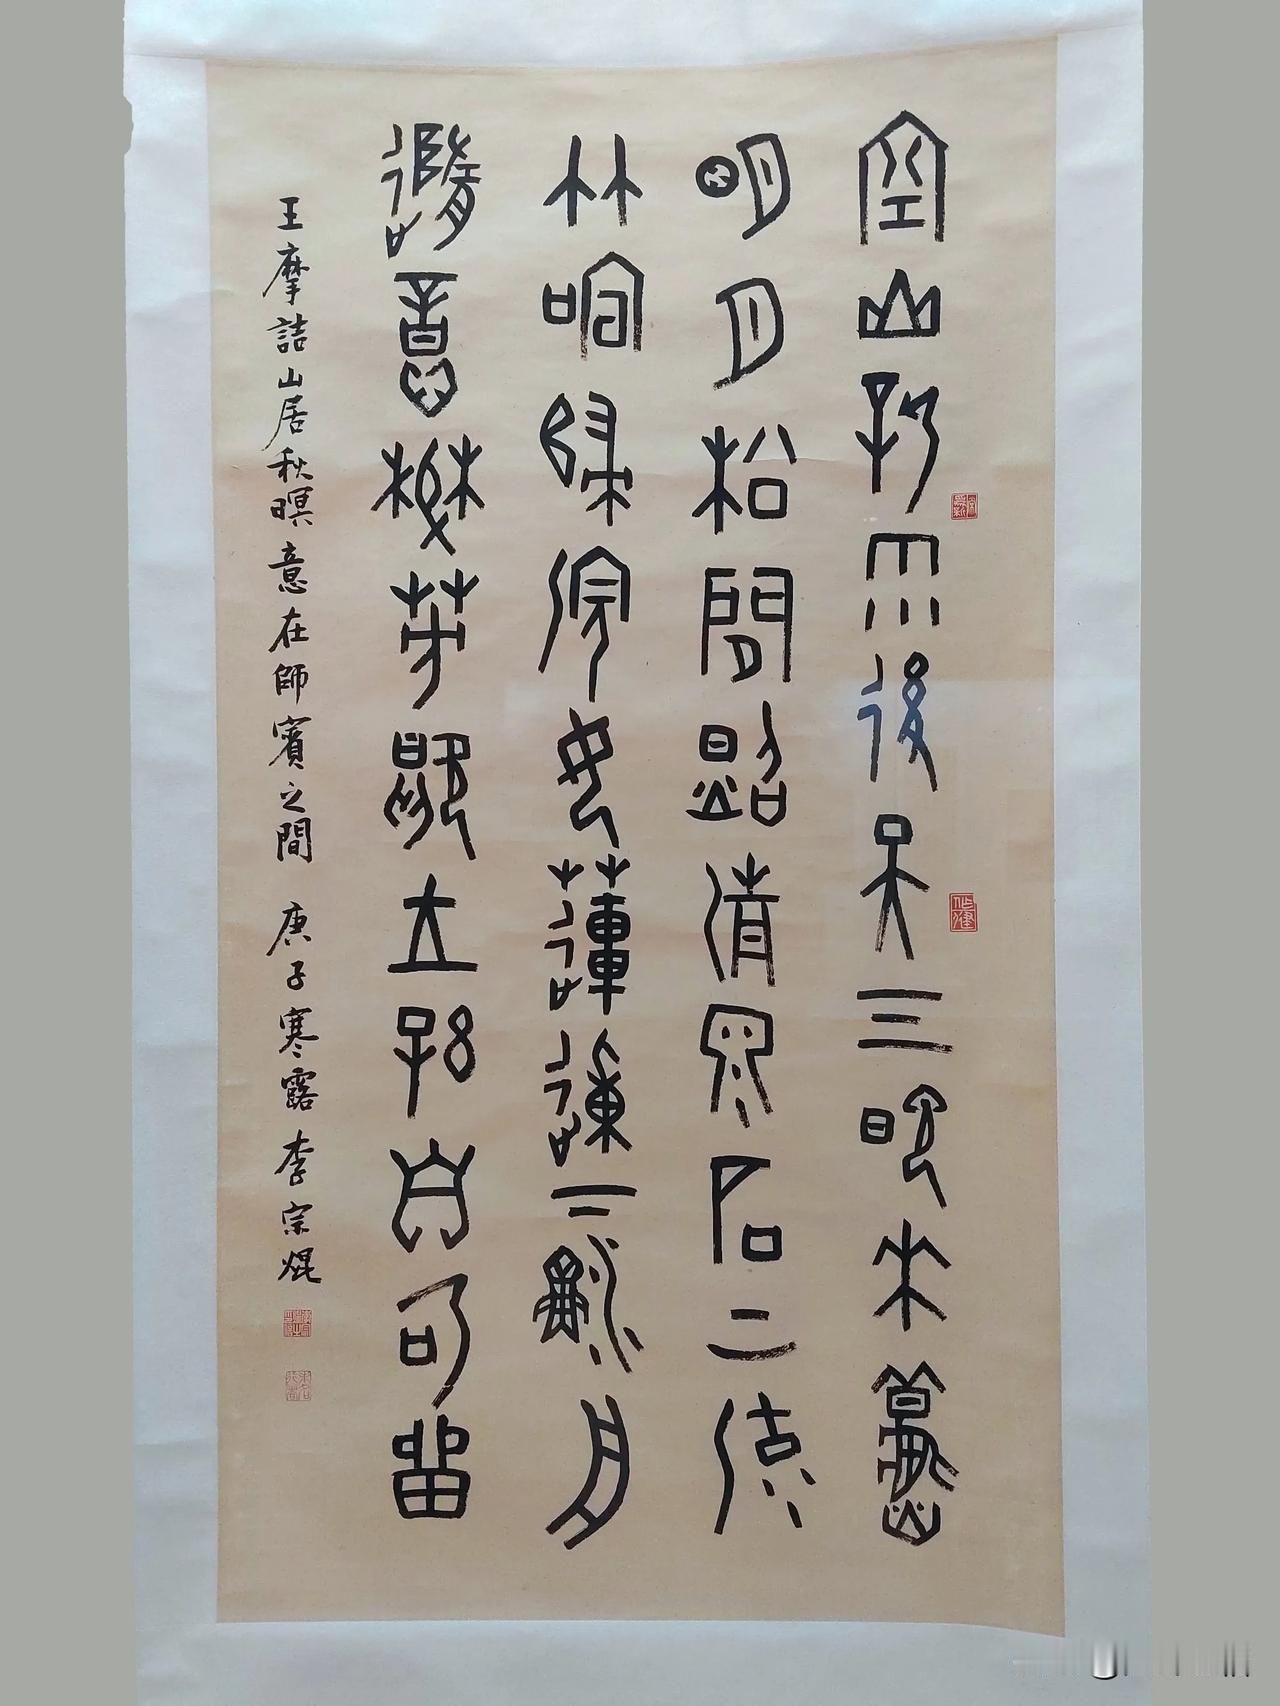 空山新雨後天气晚來秋
明月松間照清泉石上流
竹喧歸浣女蓮動下漁舟
隨意春芳歇王孫自可留
王摩詰山居秋暝意在師賓之間 庚子寒露 李宗焜